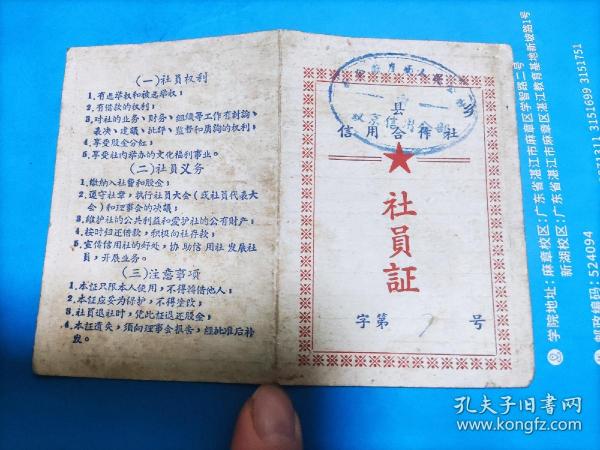 (一)社員权利
1.有选举权和被选举权;
2.有借款的权利;
3.对社的业务、财务、組織等工作有討論、
表决、建議、批評、監督和质詢的权利;
4.享受股金分紅;
5.享受社内举办的文化福利事业。
(二)社員义务
1.缴納入社費和股金;
2.遵守社章,执行社員大会(或社員代表大
会)和理事会的决議;
3.維护社的公共利益和爱护社的公有財产;
4.按时归还借款,积极向社存款;
5.宣傳信用社的好处,协助信用社发展社
員,开展业务。
(三)注意事項
1.本証只限本人使用,不得轉借他人;
2.本証应妥为保护,不得塗改;
3.社員退社时,凭此証退还股金;
4.本証遺失,須向理事会报告,經批准后补
发。
县 乡
信用合作社
社員証
字第 号
学院地址:麻章校区:广东省湛江市麻章区学智路二号
新湖校区:广东省湛江市麻章区湛江教育基地新坡路1号
邮政编码:524094
3151699 3151751
孔夫子旧书网
www.kongfz.com